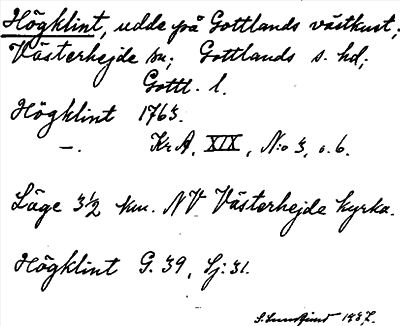 Högklint, udde på Gottlands västkust,
Västerhejde sn; Gottlands s. hd;
Gottl. l.
Högklint 1763.
—. KrA, XIX, N:o 3, s. 6.
Läge 3½ km. NV Västerhejde kyrka.
Högklint G. 39, Sj: 31.
1937.